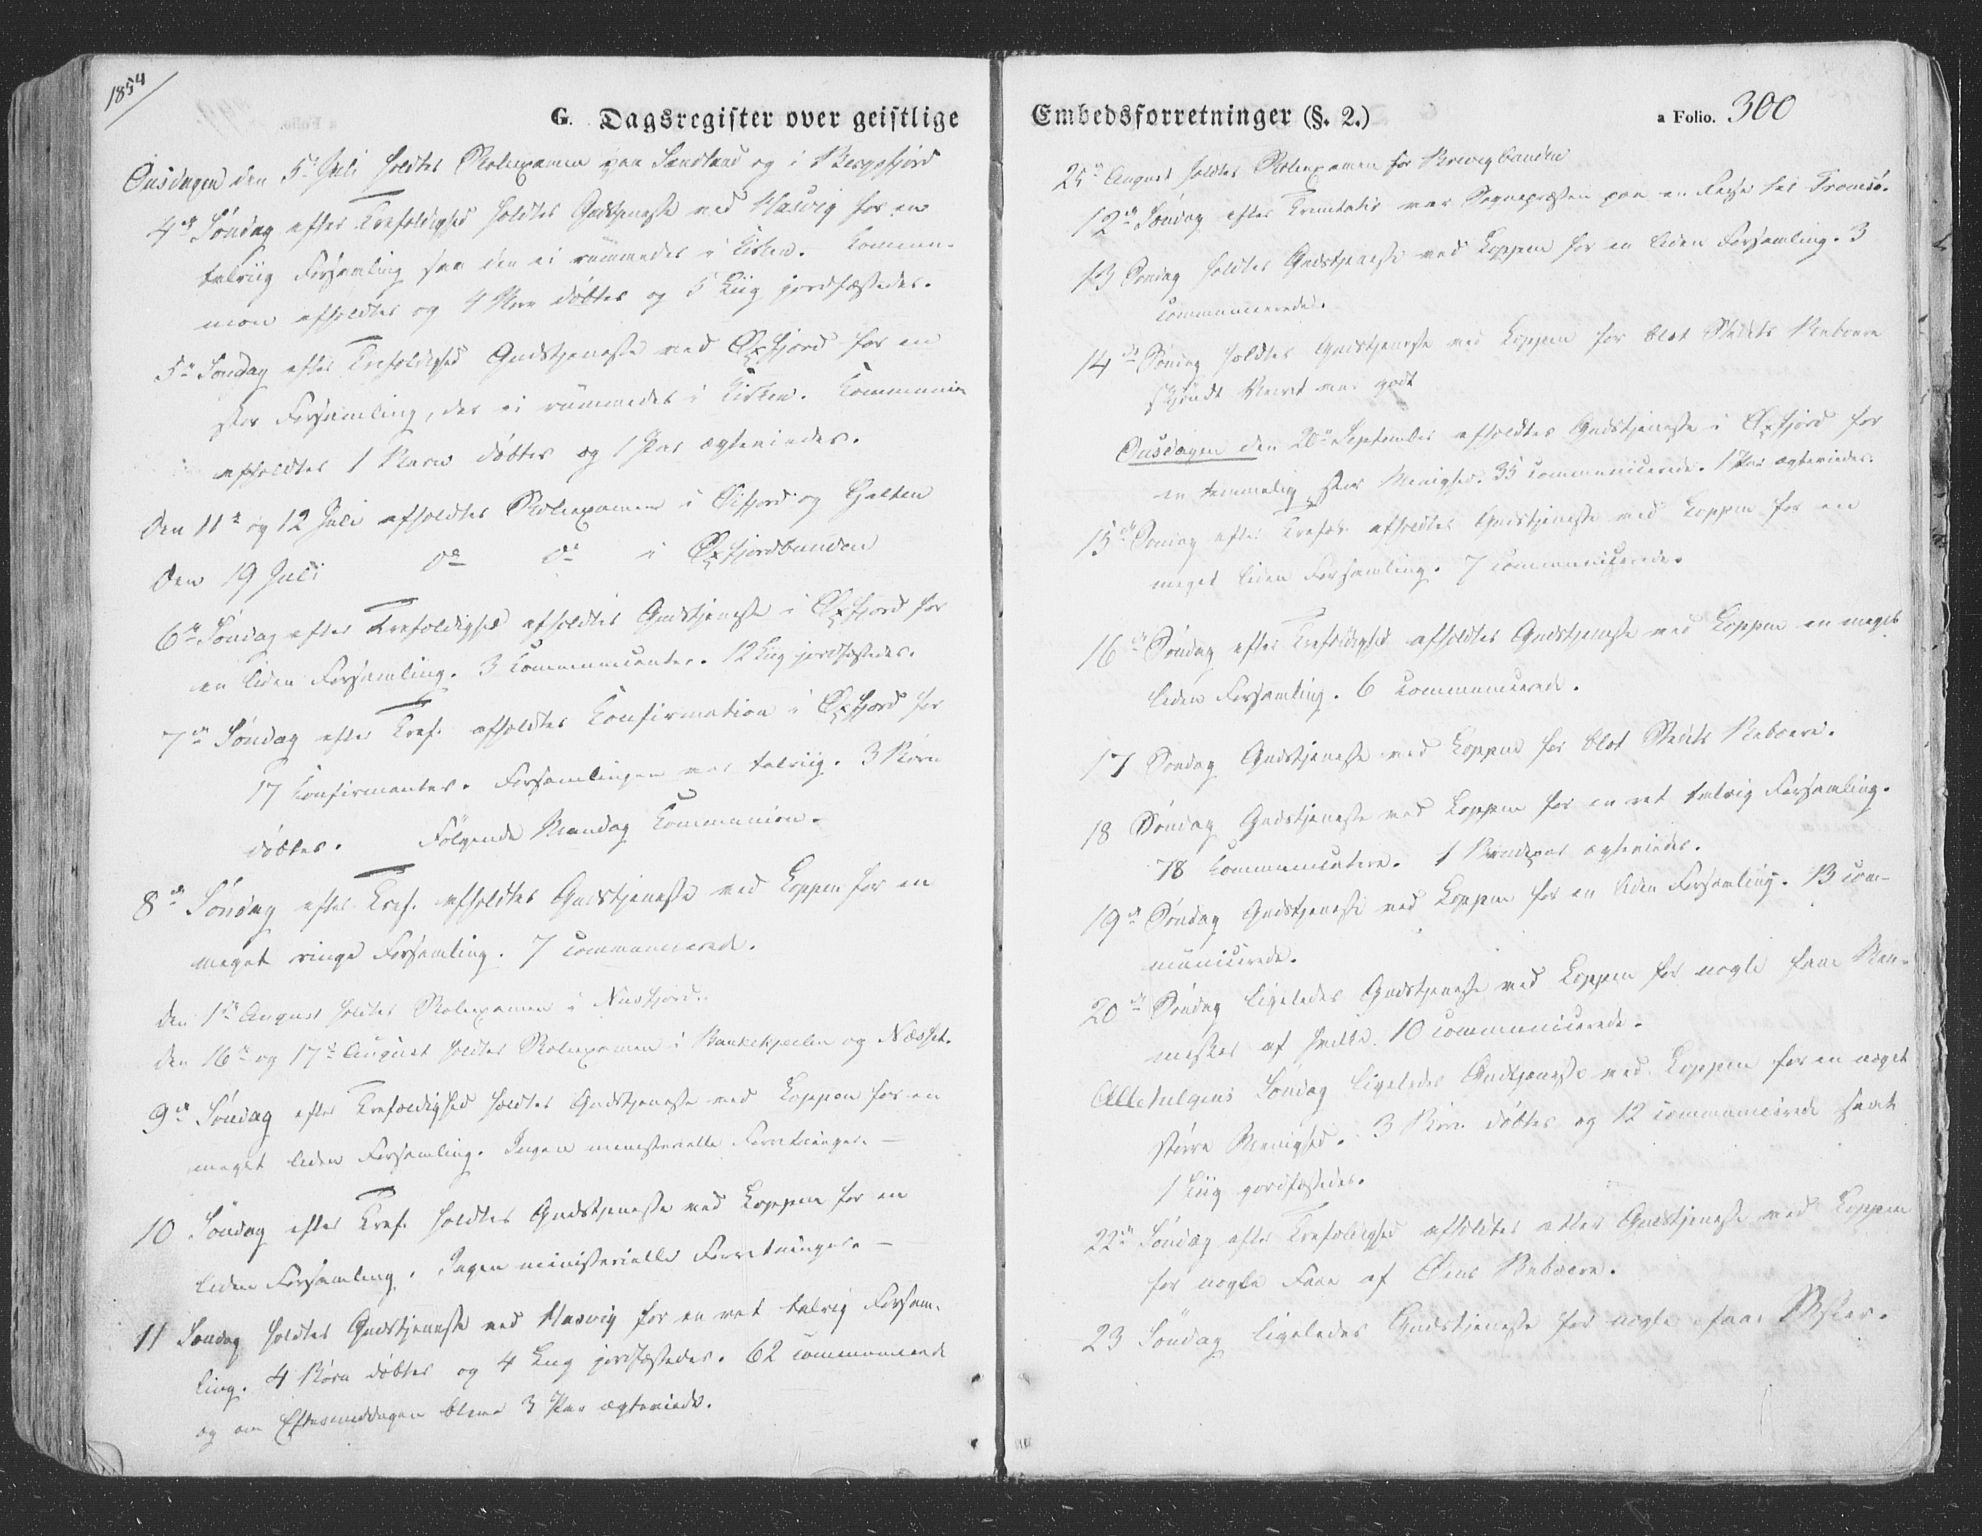 1854
G. Dagsregister over geistlige
Onsdagen den 5te Juli holdtes Skoleexamen paa Sandland og i Bergsfjord
4de Søndag efter Trefoldighed holdtes Gudstjeneste ved Hasvig for en
talriig Forsamling saa den ei rummedes i Kirken. Commu-
nion afholdtes og 4 Børn døbtes og 5 Liig jordfæstedes.
5te Søndag efter Trefoldighed Gudstjeneste ved Øxfjord for en
stor Forsamling, der ei rummedes i Kirken. Communion
afholdtes 1 Barn døbtes og 1 Par ægteviedes.
Den 11te og 12 Juli afholdtes Skoleexamen i Øifjord og Galten
Den 19 Juli do do i Øxfjordbunden
6te Søndag efter Trefoldighed afholdtes Gudstjeneste i Øxfjord for
en liden Forsamling. 3 Communicanter. 12 Liig jordfæstedes.
7de Søndag efter Tref. afholdtes Confirmation i Øxfjord for
17 Confirmanter. Forsamlingen var talriig. 3 Børn
døbtes. Følgende Mandag Communion.
8de Søndag efter Tref. afholdtes Gudstjeneste ved Loppen for en
meget ringe Forsamling. 7 communicerede.
den 1ste August holdtes Skoleexamen i Nusfjord.
den 16de og 17de August holdtes Skoleexamen i og Næsset.
9de Søndag efter Trefoldighed holdtes Gudstjeneste ved Loppen for en
meget liden Forsamling. Ingen ministerielle Forretninger. —
10 Søndag efter Tref. holdtes Gudstjeneste ved Loppen for en
liden Forsamling. Ingen ministerielle Forretninger. —
11 Søndag holdtes Gudstjeneste ved Hasvig for en ret talrig Forsam-
ling. 4 Børn døbtes og 4 Liig jordfæstedes. 62 communicerede
og om Eftermiddagen bleve 3 Par ægteviede.
Embedsforretninger (§. 2.)
a Folio. 300
25de August holdtes Skoleexamen for
12te Søndag efter Trinitatis var Sognepræsten paa en Reise til Tromsø.
13 Søndag holdtes Gudstjeneste ved Loppen for en liden Forsamling. 3
communicerede.
14de Søndag holdtes Gudstjeneste ved Loppen for blot Stedets Beboere
skjøndt Veiret var godt
Onsdagen den 20de September afholdtes Gudstjeneste i Øxfjord for
en temmelig stor Menighed. 35 communicerede. 1 Par ægteviedes.
15de Søndag efter Trefol. afholdtes Gudstjeneste ved Loppen for en
meget liden Forsamling. 7 communicerede.
16de Søndag efter Trefoldighed afholdtes Gudstjeneste ved Loppen en meget
liden Forsamling. 6 communicerede.
17 Søndag Gudstjeneste ved Loppen for blot Stedets Beboere.
18 Søndag Gudstjeneste ved Loppen for en ret talrig Forsamling.
78 Communicantere. 1 Brudepar ægteviedes.
19de Søndag Gudstjeneste ved Loppen for en liden Forsamling. 13 com-
municerede.
20de Søndag ligeledes Gudstjeneste ved Loppen for nogle faae Men-
nesker af hvilke 10 communicerede.
Allehelgens Søndag ligeledes Gudstjeneste ved Loppen for en noget
større Menighed. 3 Børn døbtes og 12 communicerede samt
1 Liig jordfæstedes.
22de Søndag efter Trefoldighed afholdtes atter Gudstjeneste ved Loppen
for nogle Faae af Øens Beboere.
23 Søndag ligeledes Gudstjeneste for nogle faae